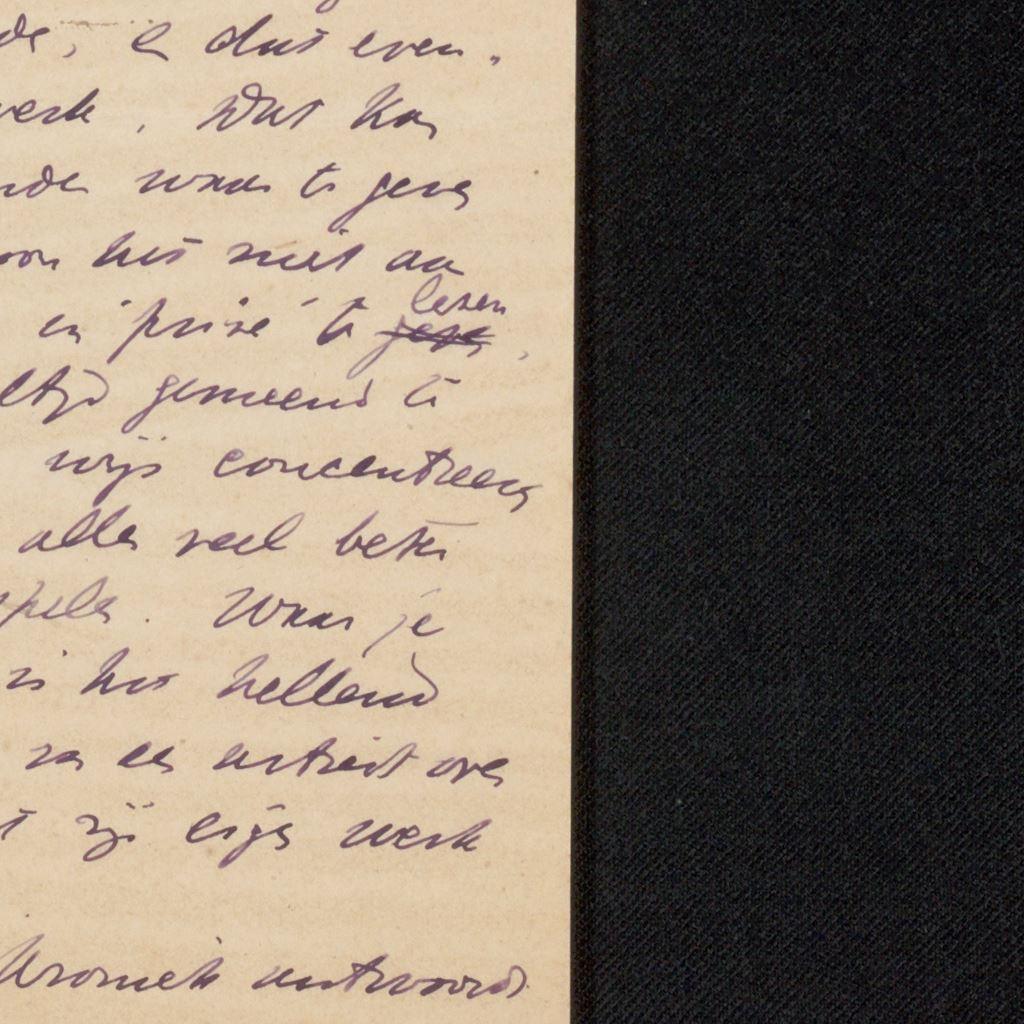 de, en dat even-
werk. Wat kan
nden waar te geven
oon het niet aan
en 'privé' te geven lezen,
altijd gemeend te
wijs concentreeren
alles veel beter
apels. Waar je
is het hellend
van een artiest over
t zijn eigen werk
Kroniek antwoord